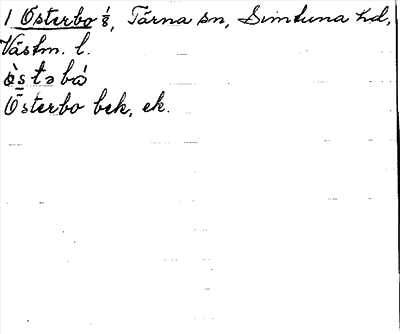 1 Österbo s, Tärna sn, Simtuna hd,
Västm. l.
ò̤stəbó
Österbo bek, ek.